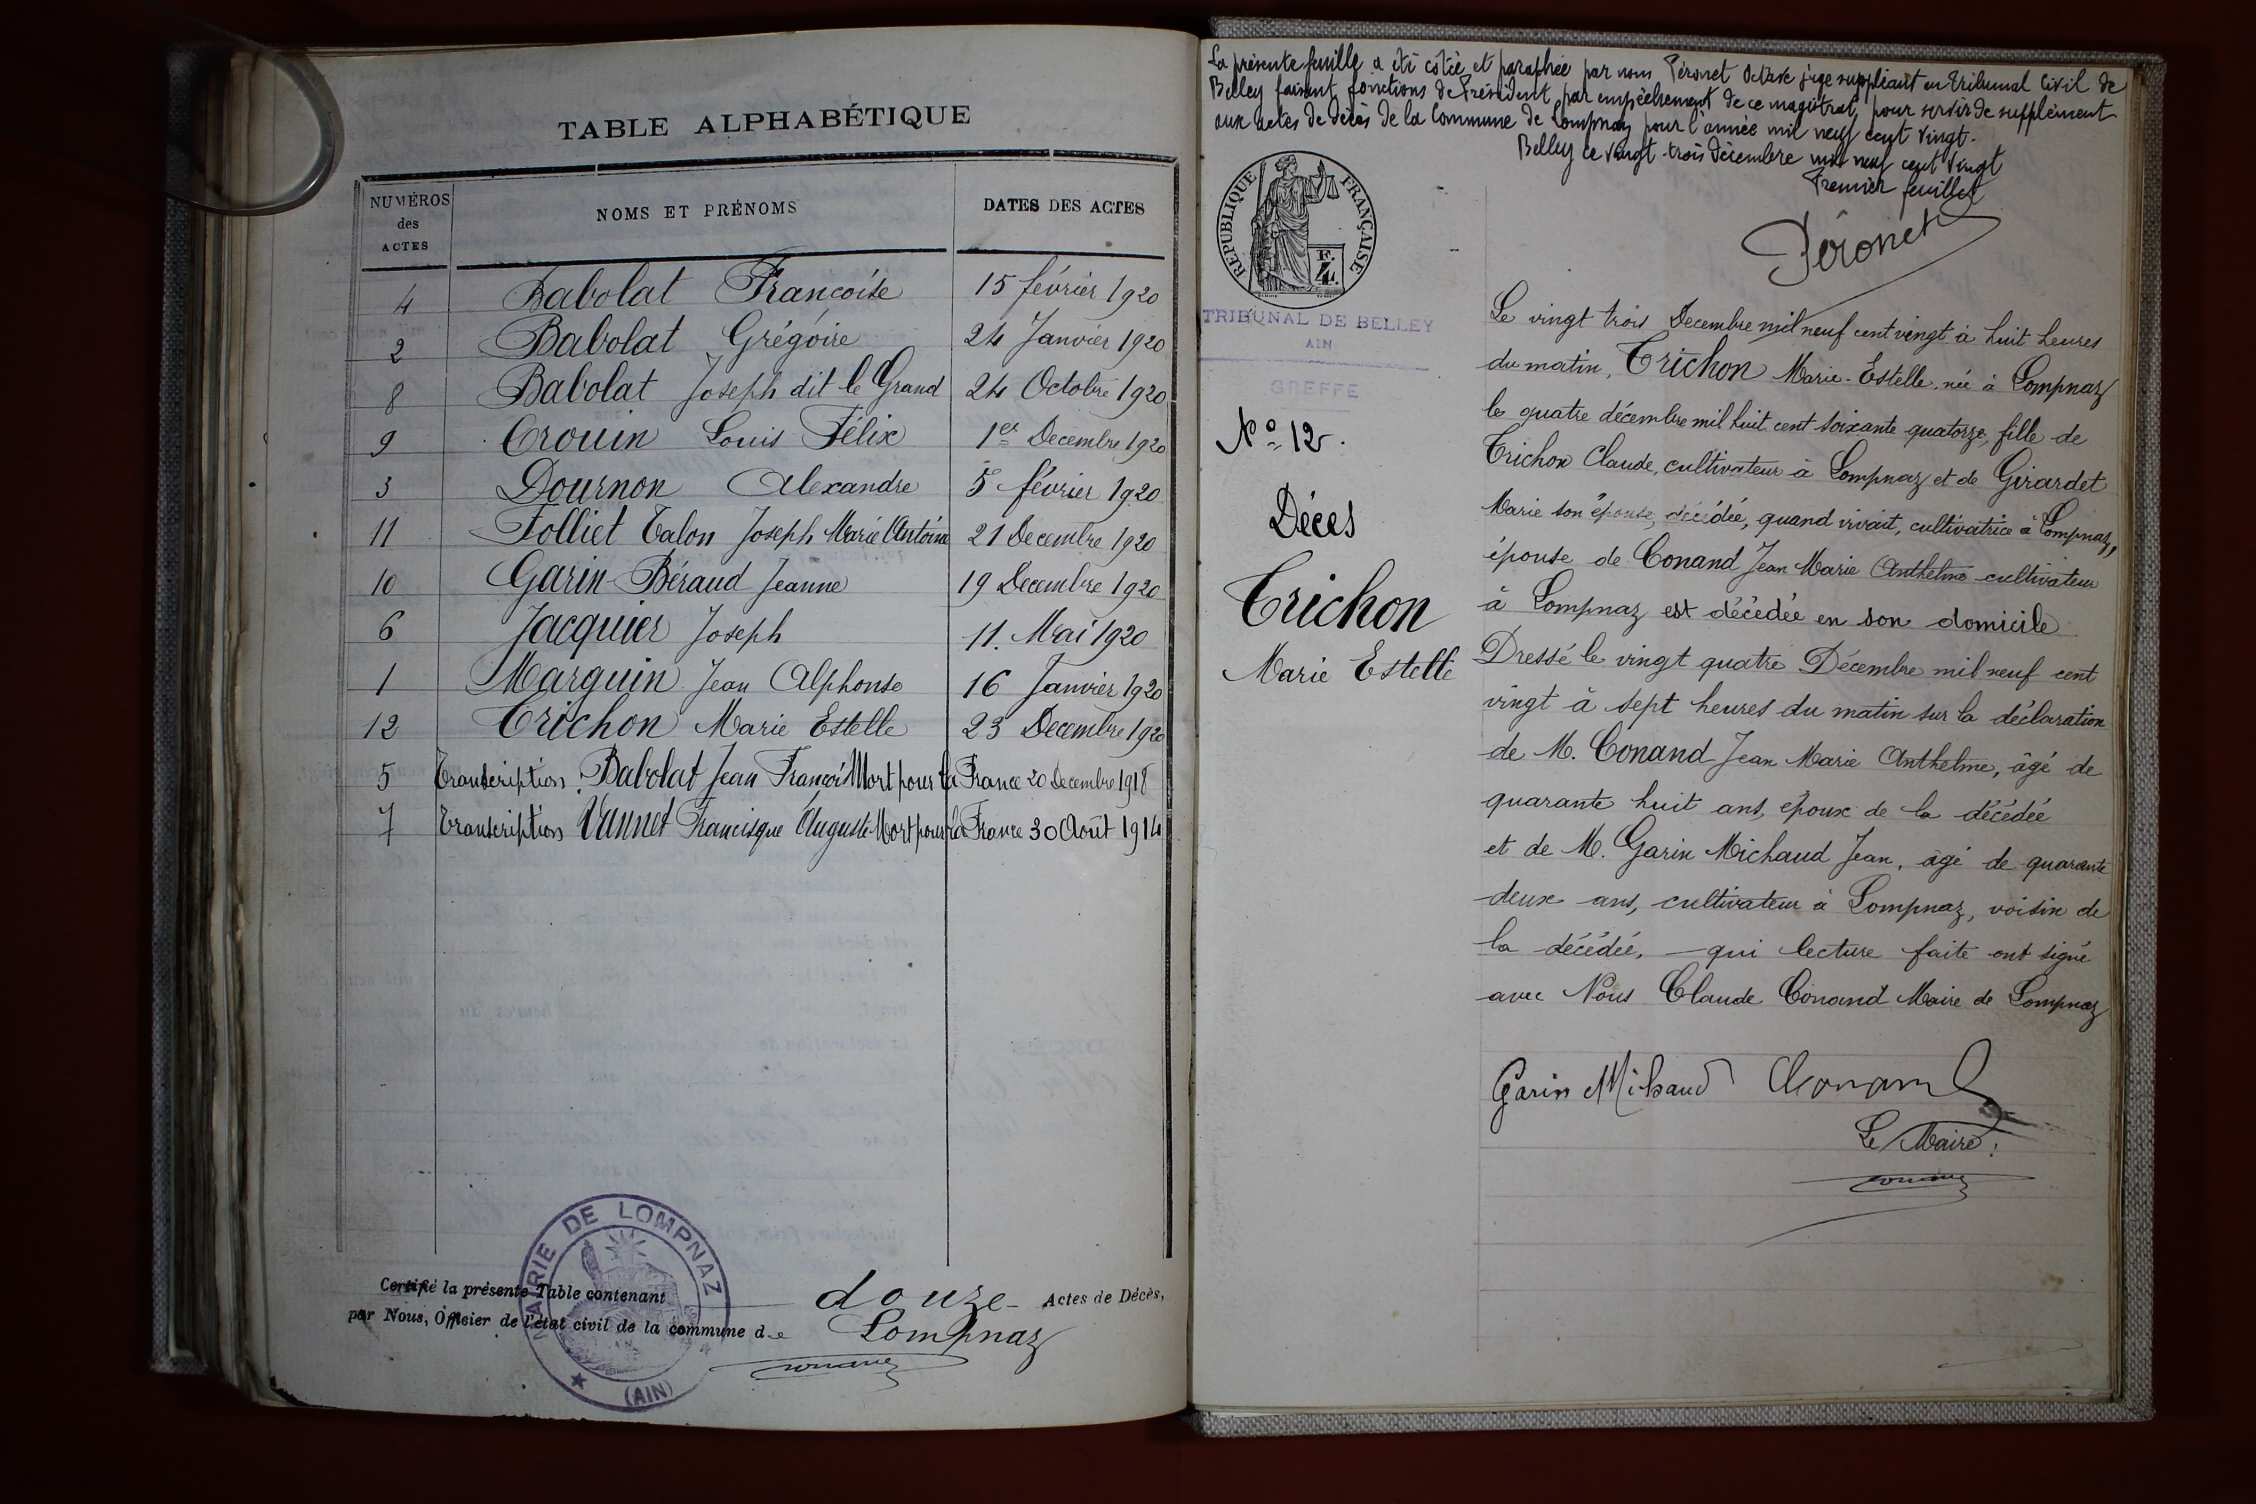 TABLE ALPHABÉTIQUE
NUMÉROS
des
ACTES
NOMS ET PRÉNOMS
DATES DES ACTES
4 Babolat Françoise 15 février 1920
2 Babolat Grégoire 24 Janvier 1920
8 Babolat Joseph dit le Grand 24 Octobre 1920
9 Crouin Louis Félix 1er Decembre 1920
3 Dournon Alexandre 5 février 1920
11 Folliet Talon Joseph Marie Antoine 21 Decembre 1920
10 Garin-Béraud Jeanne 19 Decembre 1920
6 Jacquier Joseph 11. Mai 1920
1 Marquin Jean Alphonse 16 Janvier 1920
12 Trichon Marie Estelle 23 Decembre 1920
5 Transcription. Babolat Jean François Mort pour la France 20 Decembre 1918
7 Transcription Vannet Francisque Auguste Mort pour la France 30 Août 1914
Certifié la présente Table contenant douze - Actes de Décès,
par Nous, Officier de l'état civil de la commune de Lompnaz
MAIRIE DE LOMPNAZ
(AIN)
La présente feuille a été côtée et paraphée par nous Péronet Octave juge suppléant au tribunal Civil de
Belley faisant fonctions de Président par empêchement de ce magistrat, pour servir de supplément
aux actes de décès de la Commune de Lompnaz pour l'année mil neuf cent vingt.
Belley ce vingt-trois décembre mil neuf cent vingt
Premier feuillet
Péronet
RÉPUBLIQUE FRANÇAISE
TRIBUNAL DE BELLEY
AIN
GREFFE
No 12.
Déces
Trichon
Marie Estelle
Le vingt trois Decembre mil neuf cent vingt à huit heures
du matin, Trichon Marie-Estelle, née à Lompnaz
le quatre décembre mil huit cent soixante quatorze, fille de
Trichon Claude, cultivateur à Lompnaz et de Girardet
Marie son épouse, décédée, quand vivait, cultivatrice à Lompnaz,
épouse de Conand Jean Marie Anthelme cultivateur
à Lompnaz est décédée en son domicile
Dressé le vingt quatre Décembre mil neuf cent
vingt à sept heures du matin sur la déclaration
de M. Conand Jean Marie Anthelme, âgé de
quarante huit ans, époux de la décédée
et de M. Garin Michaud Jean, âgé de quarante
deux ans, cultivateur à Lompnaz, voisin de
la décédée, - qui lecture faite ont signé
avec Nous Claude Conand Maire de Lompnaz
Garin Michaud Conand
Le Maire: